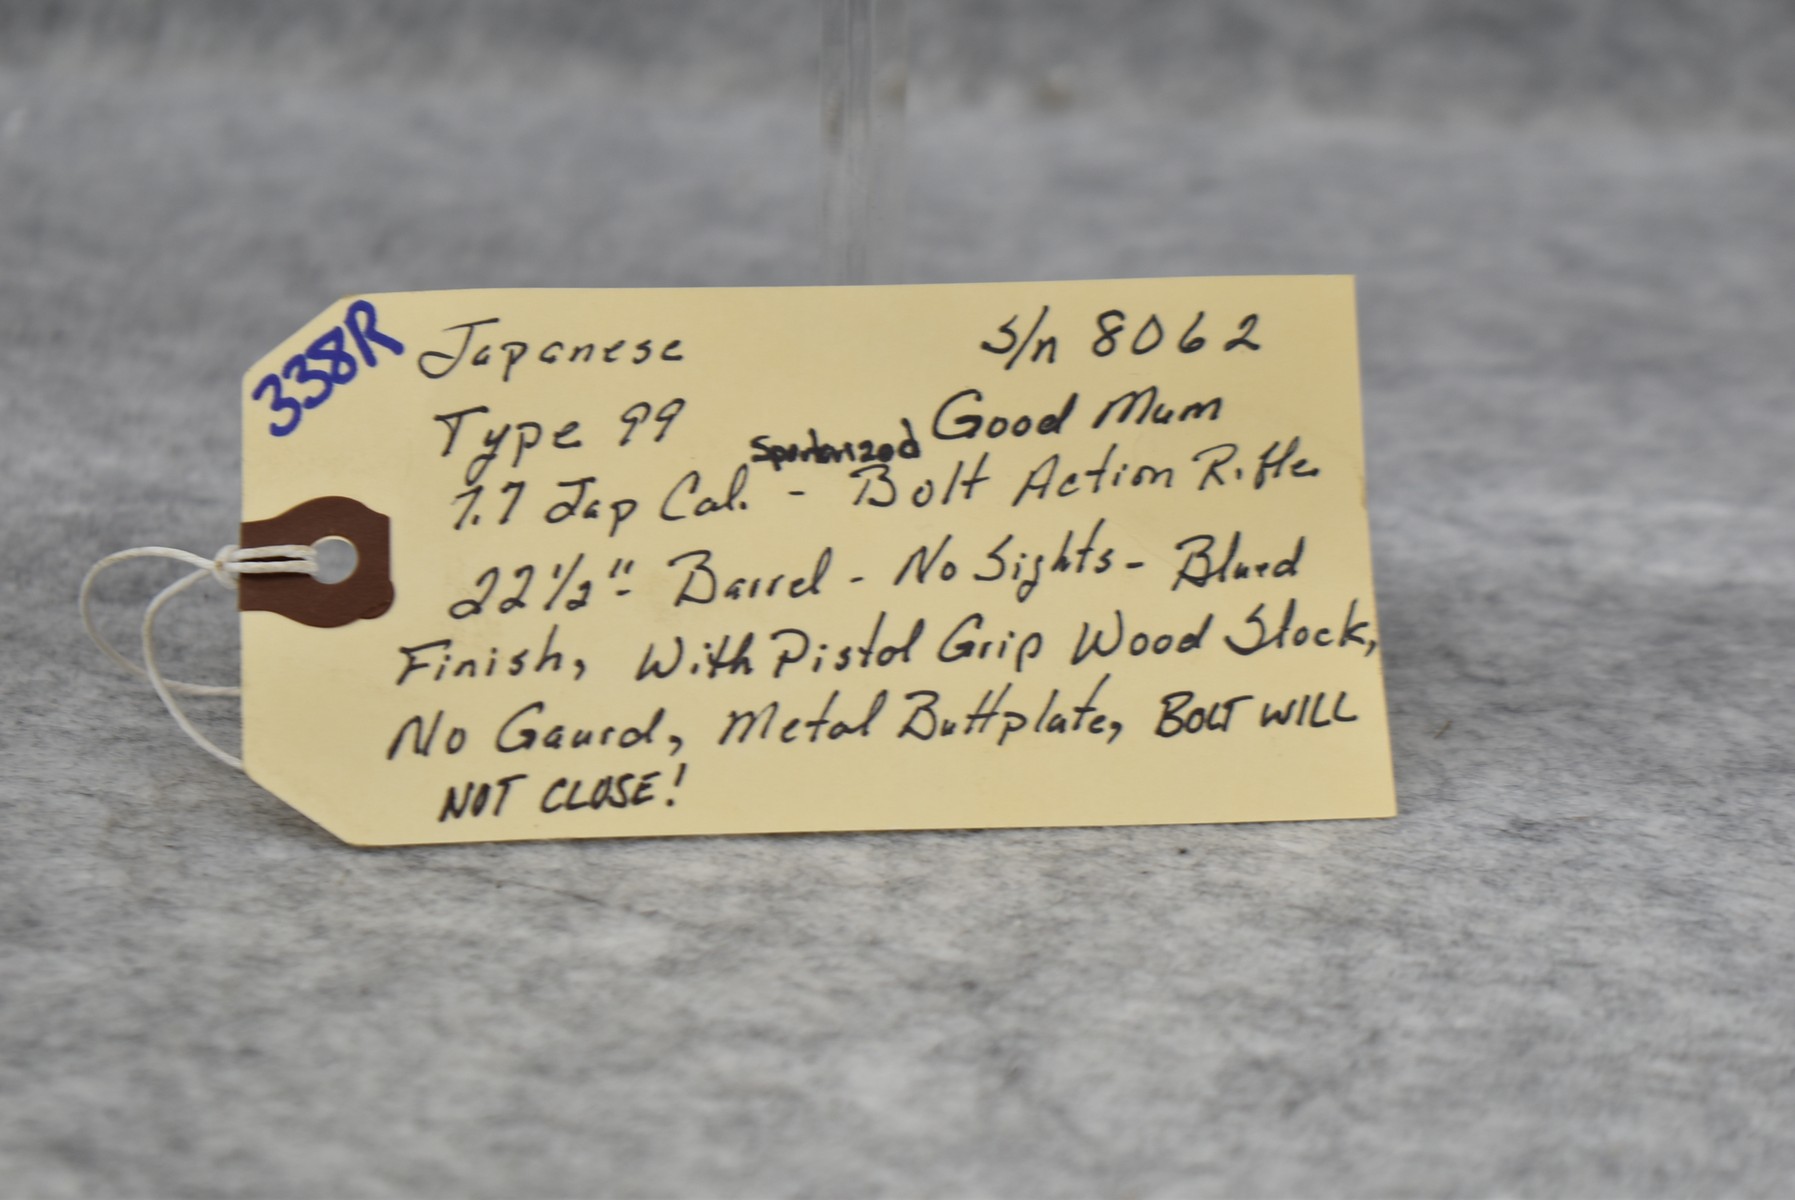 338R
Japanese S/n 8062
Type 99 Good Mum
Sporterized
7.7 Jap Cal. - Bolt Action Rifle.
22 1/2" Barrel - No Sights - Blued
Finish, With Pistol Grip Wood Stock,
No Gaurd, Metal Buttplate, BOLT WILL
NOT CLOSE!